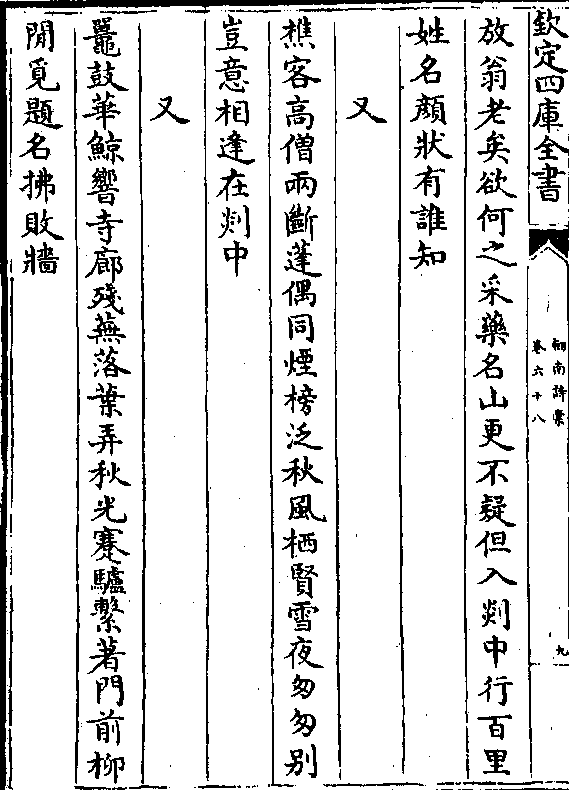 欽定四庫全書
劒南詩稾
卷六十八
九
放翁老矣欲何之采藥名山更不疑但入剡中行百里
姓名顔狀有誰知
又
樵客高僧兩斷蓬偶同煙榜泛秋風栖賢雪夜匆匆别
豈意相逢在剡中
又
鼉鼓華鯨響寺廊殘蕪落葉弄秋光蹇驢繫著門前柳
閒覓題名拂敗牆